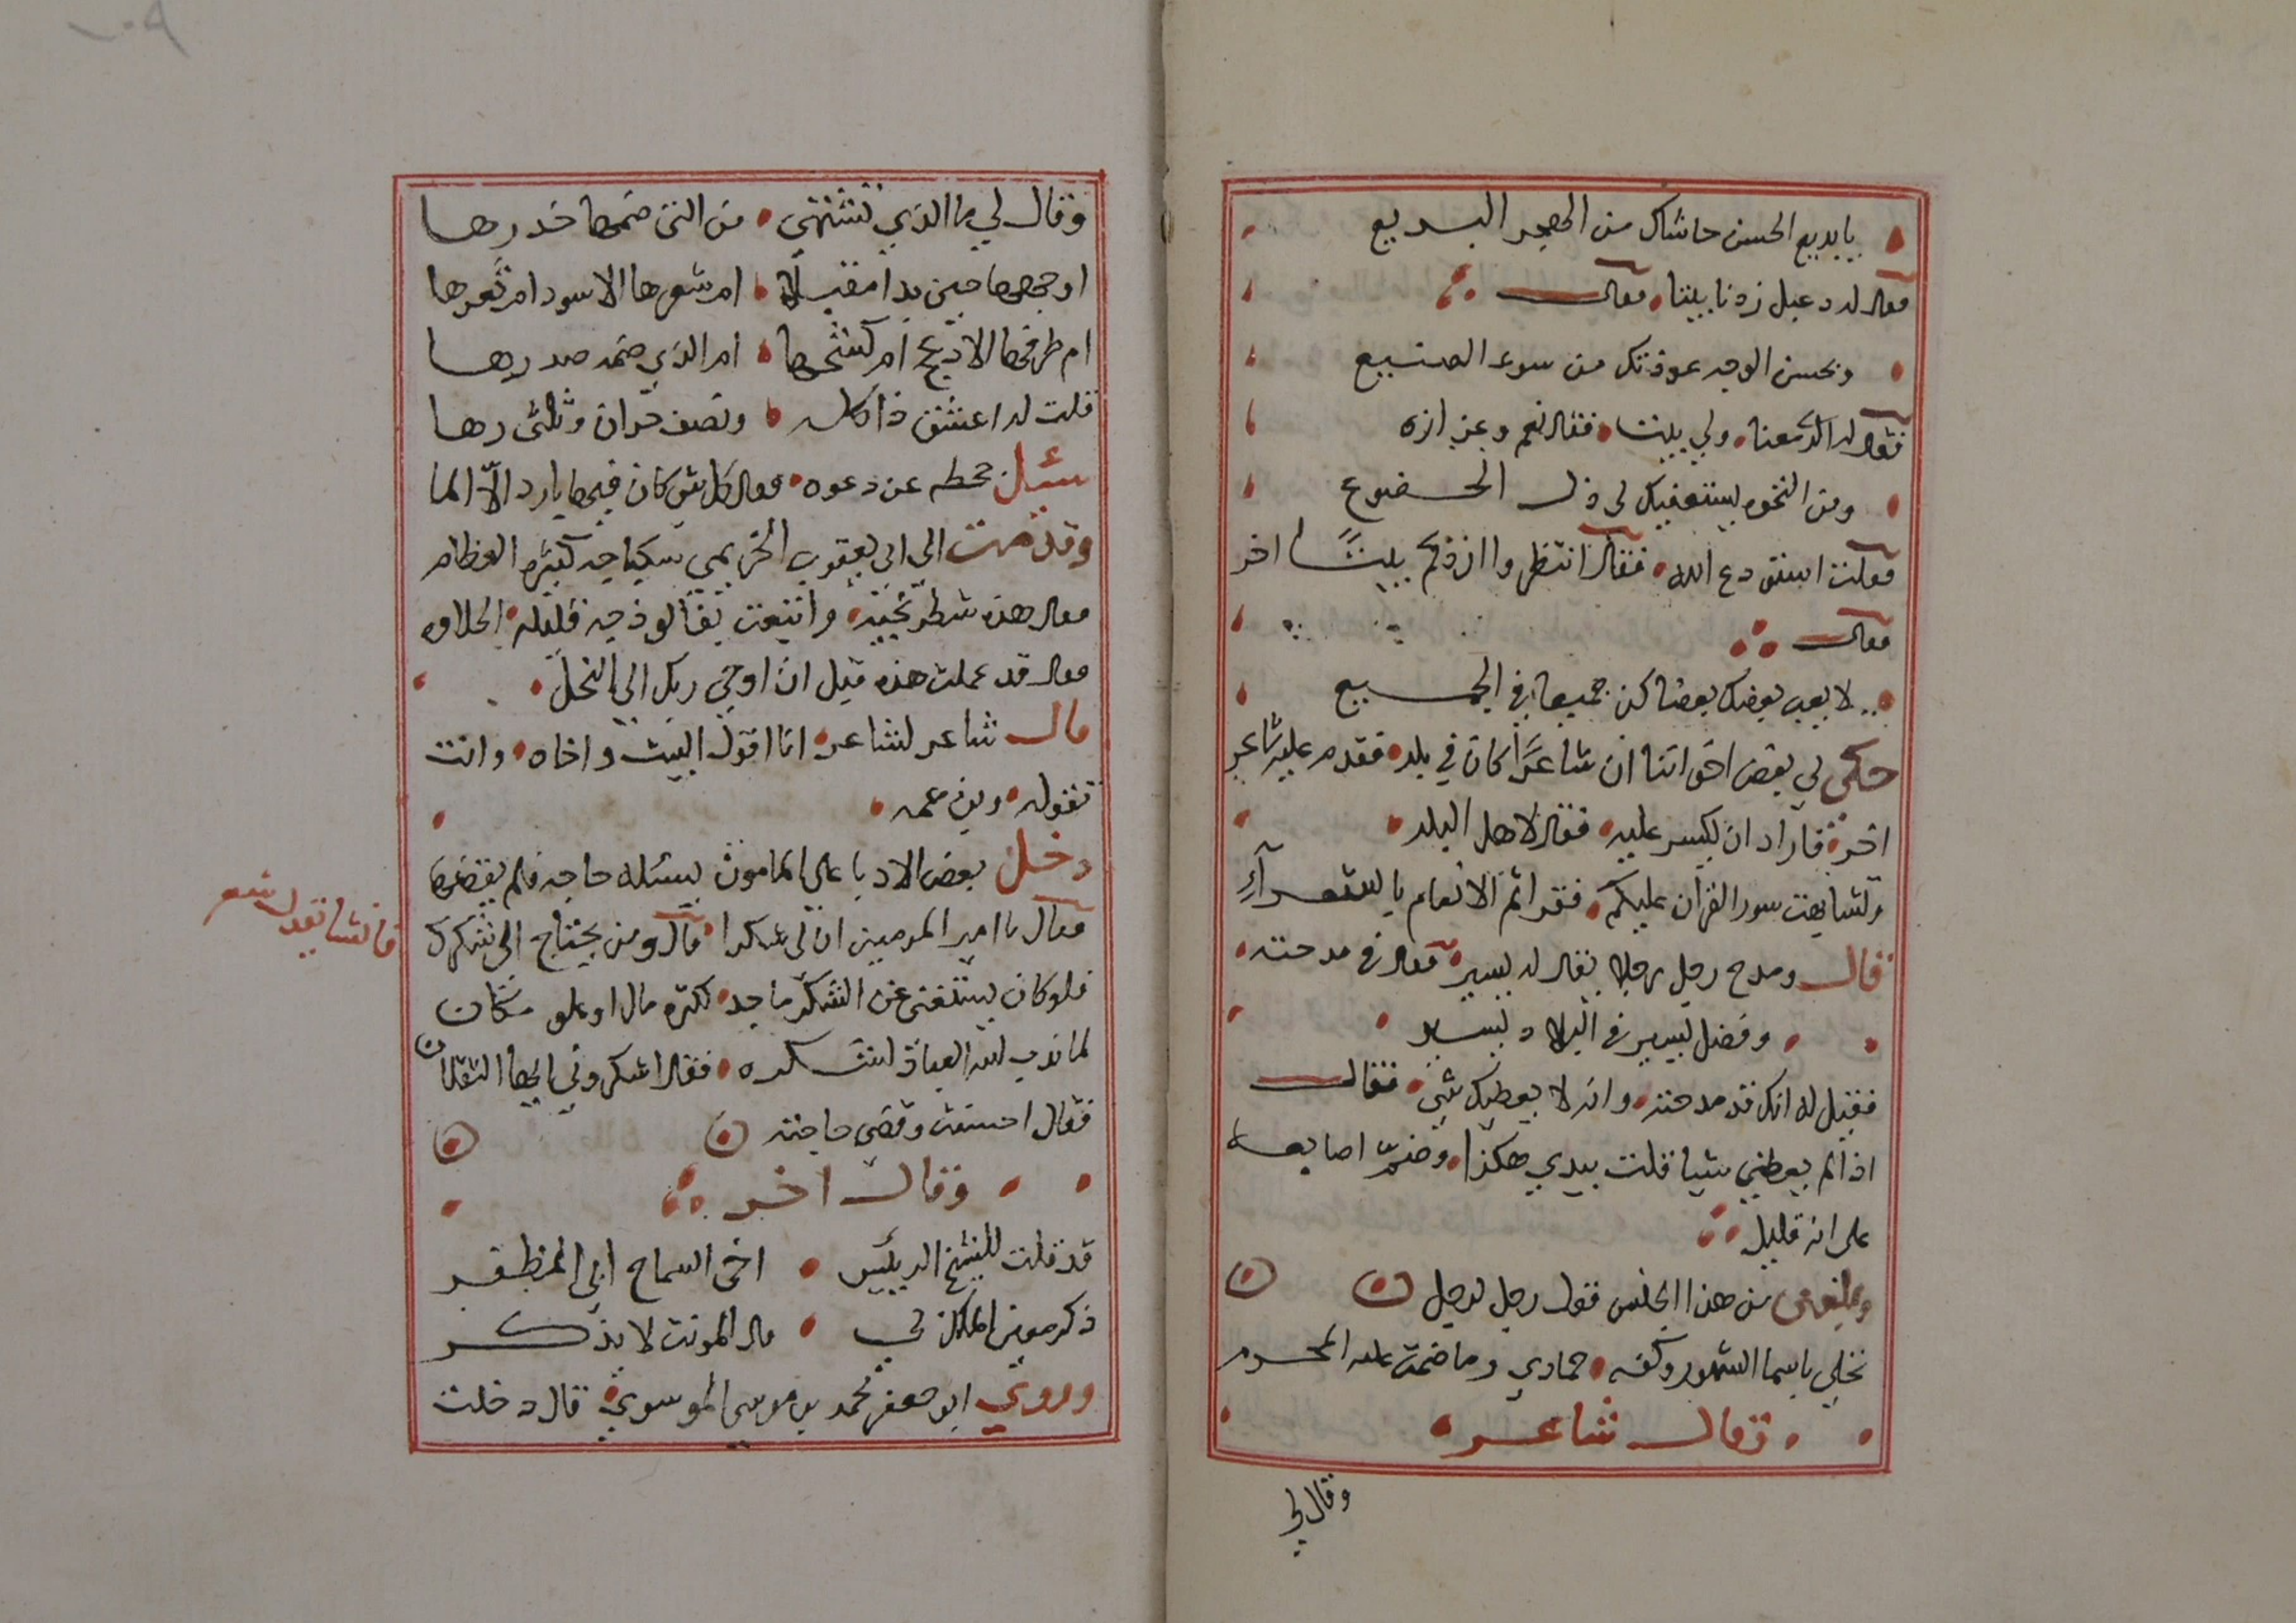 يا بديع الحسن حاشاك من الهجر البديع
فقال له دعبل زدنا بيتا فقال
وبحسن الوجه عوذتك من سوء الصنيع
فقال له الكل معنا ولي بيت فقال نعم وعزازه
ومن النخوه يستعفيك لي ذل الخضوع
فقلت استودع الله فقال انتظروا ازدكم بيتًا اخر
فقال
لا يعب بعضك بعضا كن جميعا في الجميع
حكى لي بعض اخواننا ان شاعرًا كان في بلد فقدم عليه شاعر
اخر فاراد ان يكسر عليه فقال لاهل البلد
وتشابهت سور القران عليكم فقراتم الانعام بالشعرآء
قال ومدح رجل رجلا يقال له يسير فقال في مدحته
وفضل يسير في البلاد يسير
فقيل له انك قد مدحته وانه لا يعطيك شي فقال
اذا لم يعطني شيا قلت بيدي هكذا وضمّ اصابعه
على انه قليل
من هذا الجنس قول رجل لرجل
نخلي باسما الشهور وكفه جمادي وما ضمت عليه المحرم
وقال شاعر
وقال لي
وقال لي ما الذي تشتهي من التي ضمها خدرها
اوجهها حين بدا مقبلا ام شعرها الاسود ام ثغرها
ام طرفها الادعج ام كشحها ام الذي ضمه صدرها
قلت له اعشق ذا كله ونصف حران وثلثي رها
سئل جحظه عن دعوه فقال كل شي كان فيها بارد الاّ الما
وقدمت الى ابي يعقوب الخريمي سكباجه كثيره العظام
فقال هذه شطرنجيه واتبعت بفالوذجه قليله الحلاوه
فقال قد عملت هذه قبل ان اوحي ربك الى النحل
قال شاعر لشاعر انا اقول البيت واخاه وانت
تقوله وبن عمه
دخل بعض الادبا على المامون يسئله حاجه فلم يقضها
فقال يا امير المومنين ان لي شكرا قال ومن يحتاج الى شكرك
فانشا يقول شعر
فلو كان يستغنى عن الشكر ماجد لكثره مال او علو مكان
لما ندب الله العباد لشكره فقال اشكروني ايها الثقلان
فقال احسنت وقضى حاجته
وقال اخر
قد قلت للشيخ الرييس اخي السماح ابي المظفر
ذكر معين الملك لي قال المونث لا يذكر
وروي ابو جعفر محمد بن موسى الموسوي قال دخلت